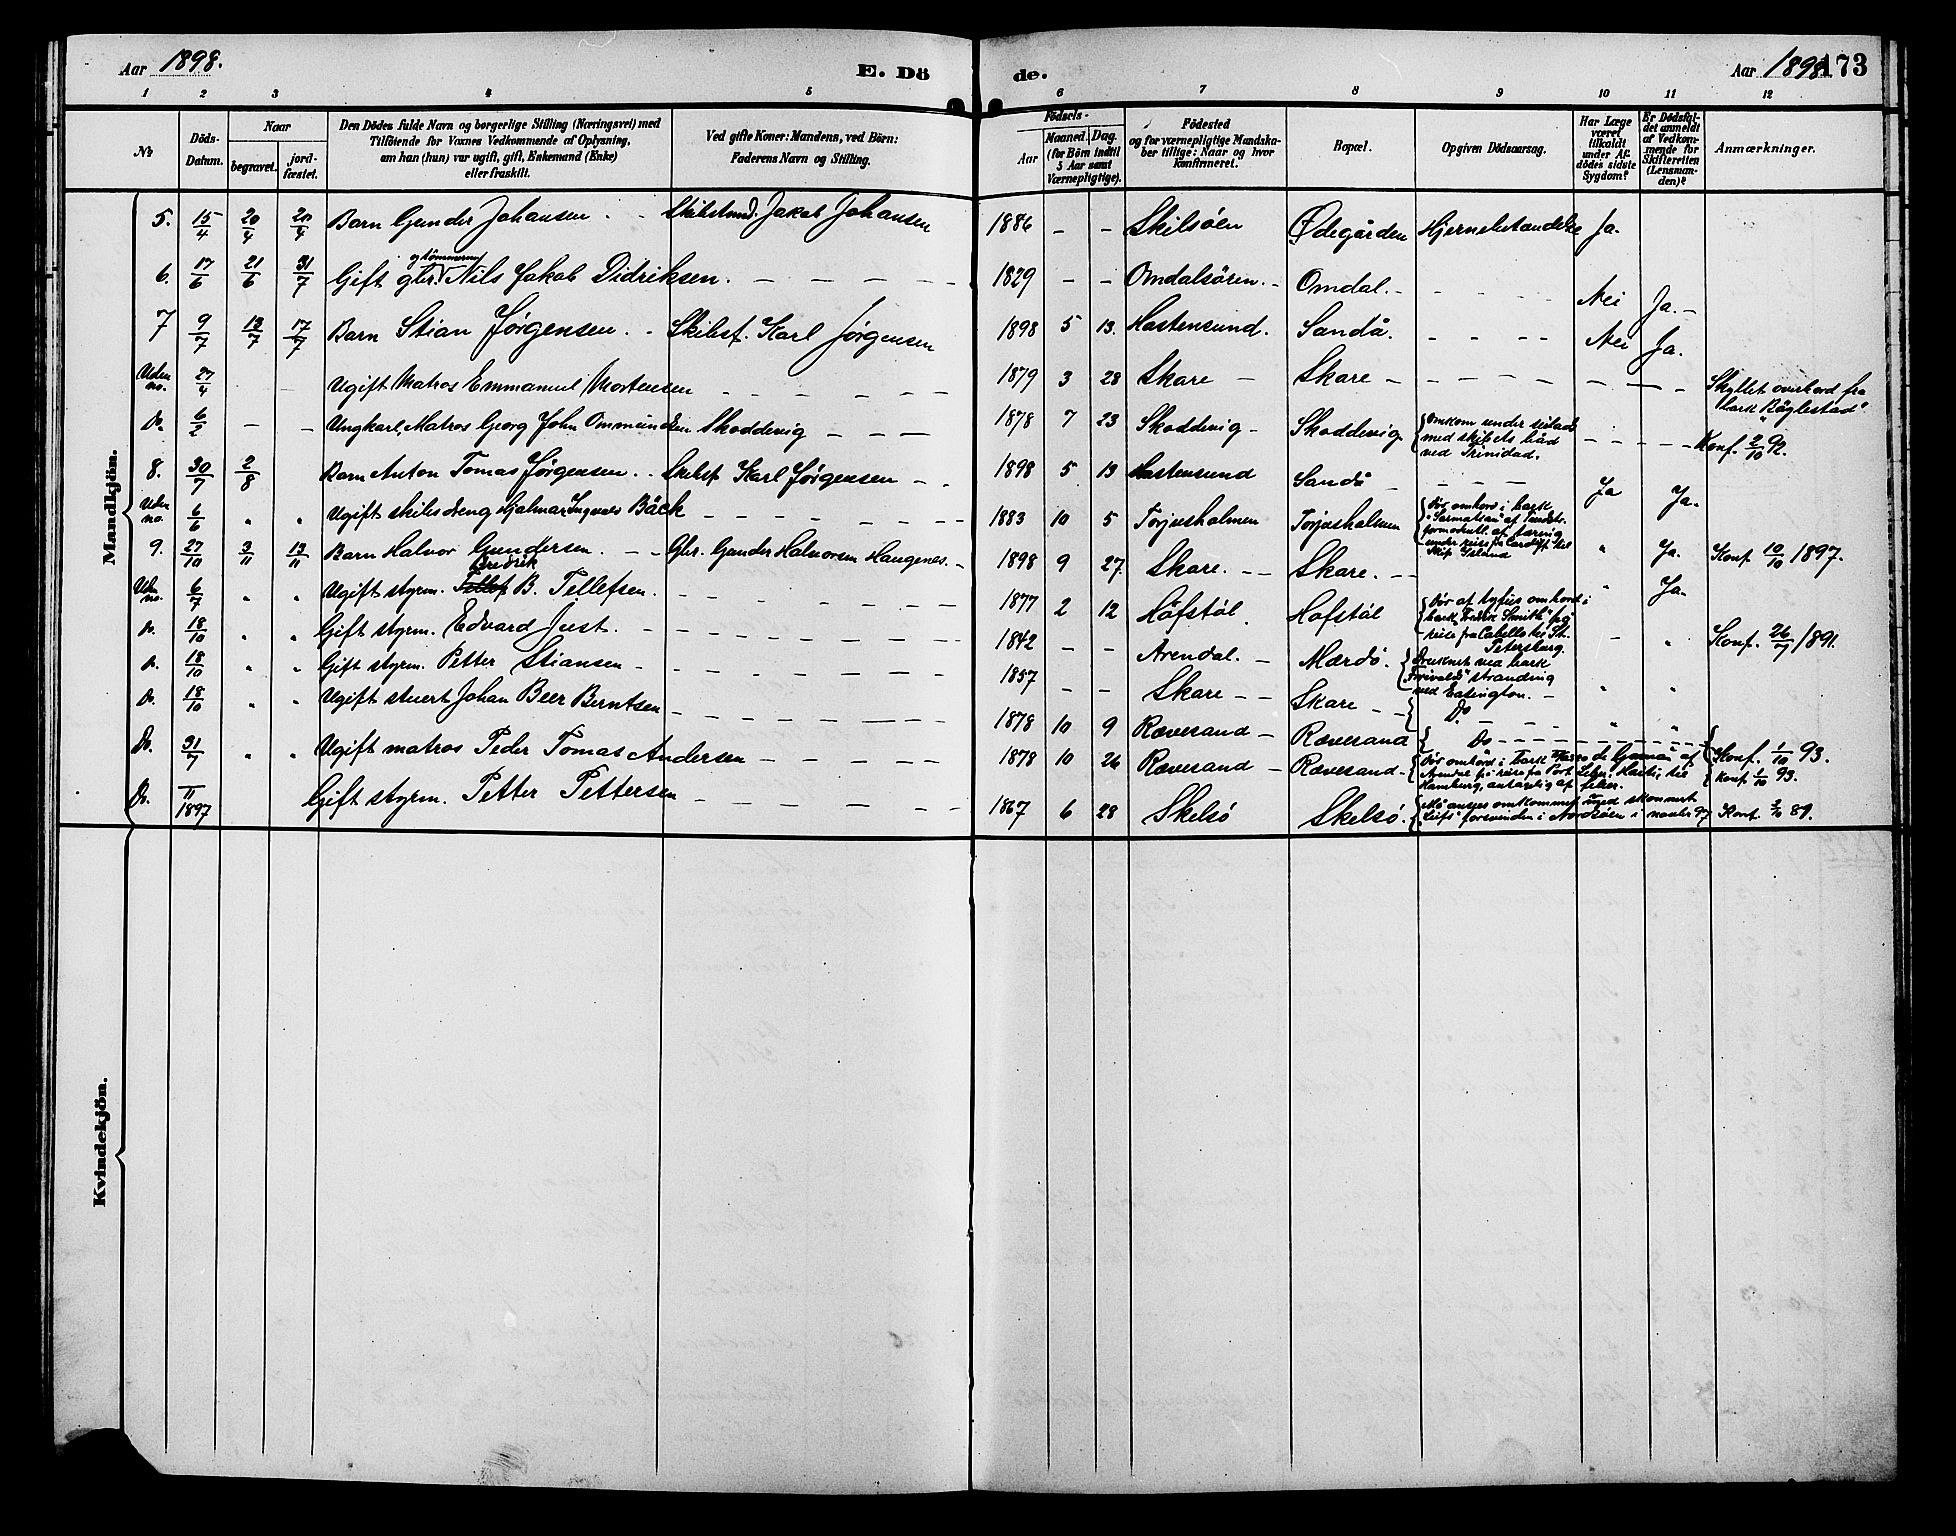 Aar 1898.
E. Dö
de.
Aar 1898
173
1 2 3 4 5
6 7 8 9 10 11 12
No
Döds-Datum.
Naar
begravet.
jordfæstet.
Den Dödes fulde Navn og borgerlige Stilling (Næringsvei) med
Tilföiende for Voxnes Vedkommende af Oplysning,
om han (hun) var ugift, gift, Enkemand (Enke)
eller fraskilt.
Ved gifte Koner: Mandens, ved Börn:
Faderens Navn og Stilling.
Födsels-
Aar
Maaned. Dag.
(for Börn indtil
5 Aar samt
Værnepligtige).
Födested
og for værnepligtige Mandska-
ber tillige: Naar og hvor
konfirmeret.
Bopæl.
Opgiven Dödsaarsag.
Har Læge
været
tilkaldt
under Af-
dödes sidste
Sygdom?
Er Dödsfal-
det anmeldt
af Vedkom-
mende for
Skifteretten
(Lensman-
den)?
Anmærkninger.
Mandkjön.
5. 15/4 20/4 20/4 Barn Gunder Johansen. - - Skibstmd. Jakob Johansen 1886 - - Skilsöen Ødegården Hjernebetændelse Ja.
6. 17/6 21/6 31/7 Gift gbr. og tømmermd Nils Jakob Didriksen. 1829 - - Omdalsören. - Omdal. - Nei Ja. -
7 9/7 13/7 17/7 Barn Stian Jørgensen. - - Skibst. Karl Jørgensen 1898 5 13. Hastensund. Sandå. - Nei Ja.
Uden no. 27/4 - - Ugift Matros Emmanuel Mortensen 1879 3 28 Skare - Skare - Skyllet overbord fra bark "Bøglestad"
Do. 6/2 - - Ungkarl, Matros Georg John Ommundsen Skoddevig 1878 7 23 Skoddevig - Skoddevig Omkom under seilads med skibets båd ved Trinidad. Konf. 2/10 92.
8. 30/7 2/8 Barn Anton Tomas Jørgensen. - - Skibst Karl Jørgensen - - 1898 5 13 Hastensund Sandå - Ja Ja.
Uden no. 6/6 " " Ugift skibsdreng Hjalmar Ingenes Bäck 1883 10 5 Torjusholmen Torjusholmen Dør ombord i bark "Sarmatian" af Tvedestr. formodentl. af tæring under reise fra Cardiff til Island Konf. 10/10 1897.
9. 27/10 3/11 13/11 Barn Halvor Gundersen. - - Gbr. Gunder Halvorsen Haugenes. - 1898 9 27 Skare. - - Skare. - - " Ja.
Uden no. 6/7 " " Ugift styrm. Fredrik B. Tellefsen. 1877 2 12 Höfstöl Höfstöl Dør af tyfus ombord i bark "Fredrik Smith" på reise fra Cabello til St. Petersburg. " Ja. Konf. 26/7 1891.
Do. 18/10 " " Gift styrm. Edvard Just. 1842 - - Arendal. - Mærdö. Druknet ved bark "Frivolds" stranding ved Easington. -
Do. 18/10 " " Gift styrm. Petter Stiansen 1857 - - Skare - - Skare - - Do
Do. 18/10 " " Ugift stuert Johan Beer Berntsen 1878 10 9 Rævesand - Rævesand Do - Konf. 1/10 93.
Do. 31/7 " " Ugift matros Peder Tomas Andersen 1878 10 26 Rævesand - Rævesand. Dør ombord i bark af Arendal på reise fra Port Haiti, til Hamburg, antagelig af feber. Konf 1/10 93.
Do. /11 1897 Gift styrm. Petter Pettersen 1867 6 28 Skelsö Skelsö. Må ansees omkommet med skonnert "Leifs" forsvinden i Nordsöen i novbr 97 Konf. 2/10 81.
Kvindekjön.